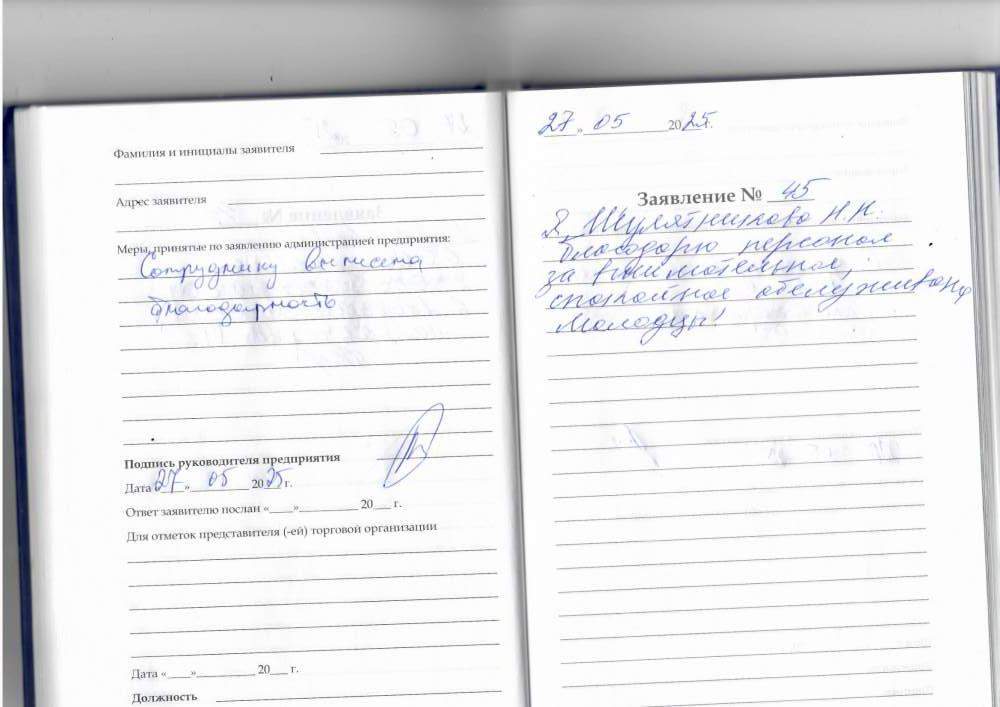 Фамилия и инициалы заявителя
Адрес заявителя
Меры, принятые по заявлению администрацией предприятия:
Сотруднику выписана
благодарность
Подпись руководителя предприятия
Дата «27» 05 2025 г.
Ответ заявителю послан «___»__________ 20___ г.
Для отметок представителя (-ей) торговой организации
Дата «___»__________ 20___ г.
Должность
27 » 05 2025 г.
Заявление № 45
Я, Шулятникова Н.Н.
благодарю персонал
за внимательное,
спокойное обслуживан
Молодцы!